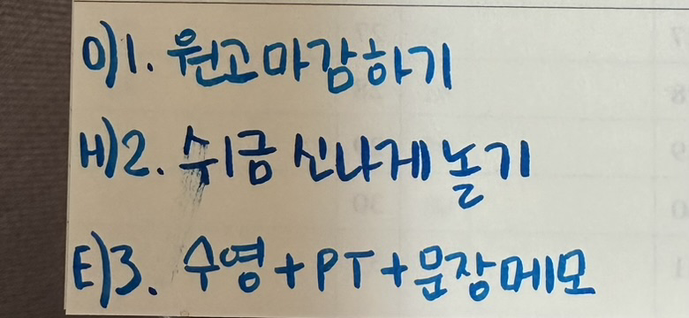 O)1. 원고마감하기
H)2. 쉬금 신나게 놀기
E)3. 수영+PT+문장메모